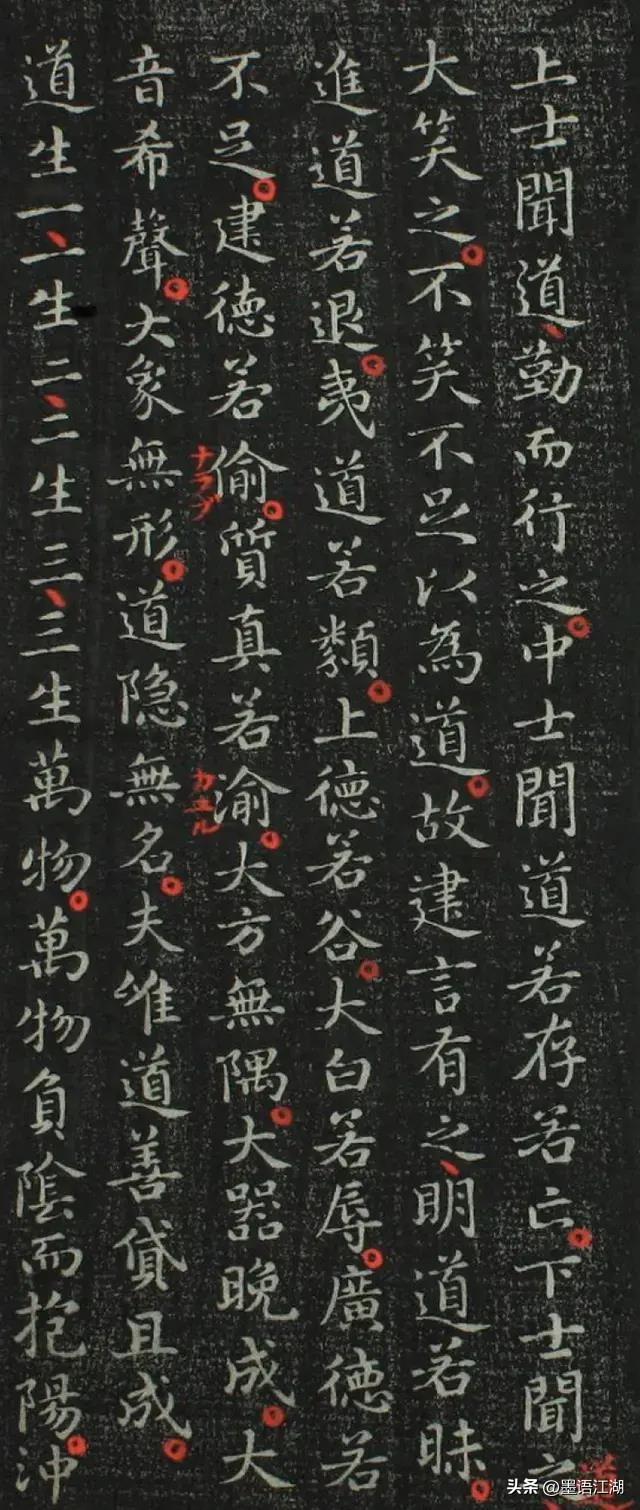 上士聞道勤而行之中士聞道若存若亡下士聞之道
大笑之不笑不足以為道故建言有之明道若昧
進道若退夷道若纇上德若谷大白若辱廣德若
不足建德若偷質真若渝大方無隅大器晚成大
ナラブ
カエル
音希聲大象無形道隐無名夫唯道善貸且成
道生一一生二二生三三生萬物萬物負陰而抱陽沖
头条@墨语江湖